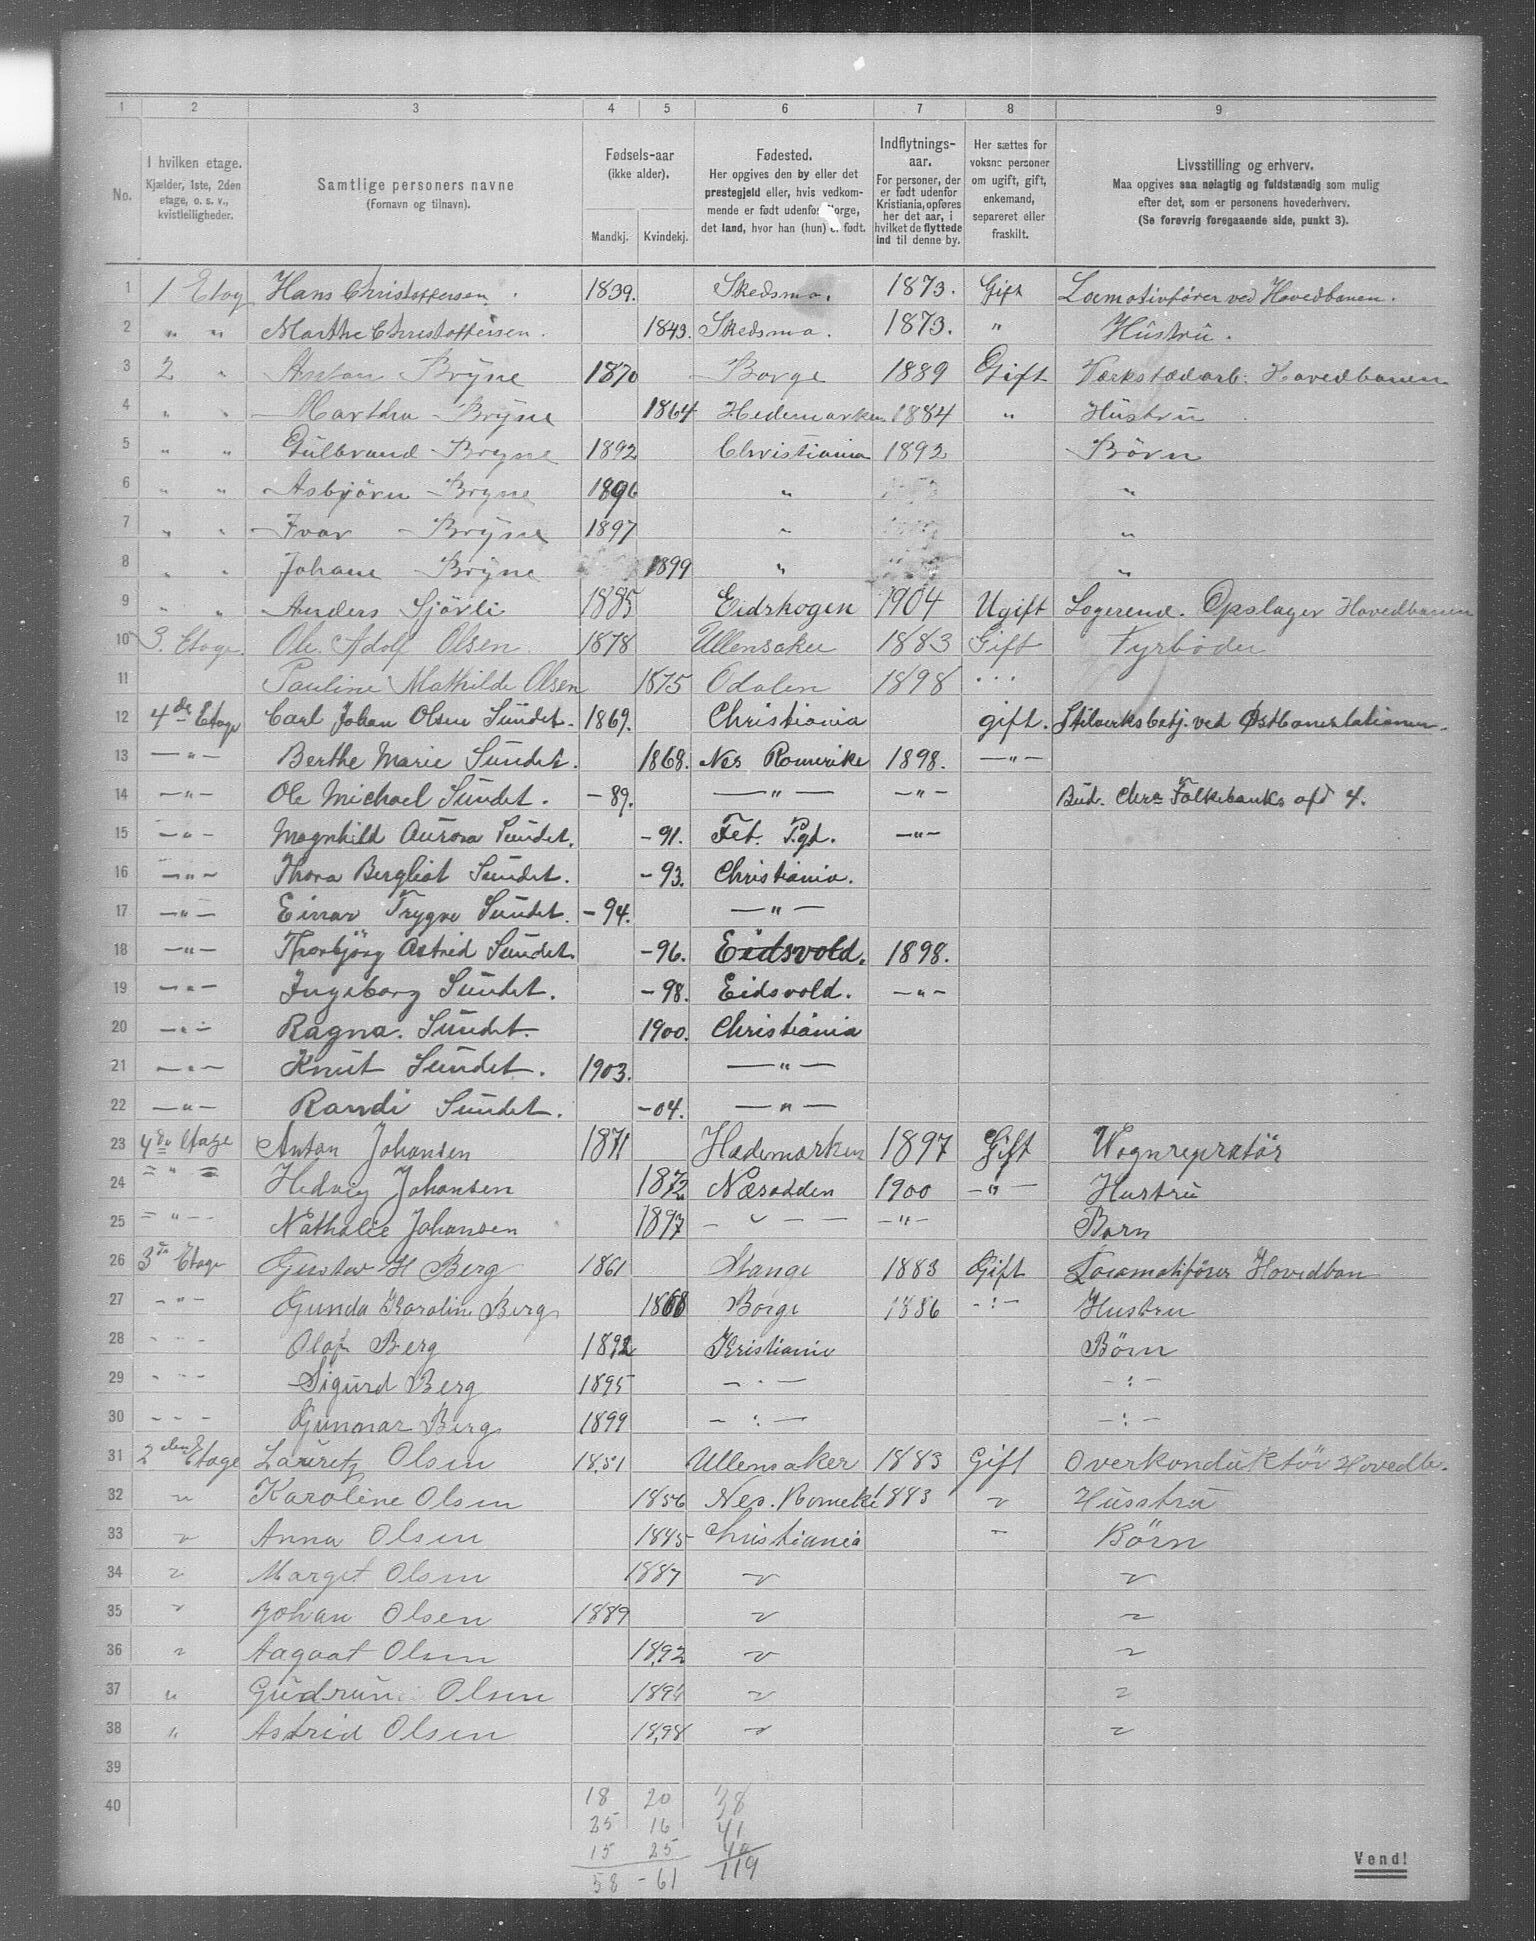 1 2 3 4 5 6 7 8 9
No.
I hvilken etage.
Kjælder, 1ste, 2den
etage, o. s. v.,
kvistleiligheder.
Samtlige personers navne
(Fornavn og tilnavn).
Fødsels-aar
(ikke alder).
Mandkj. Kvindekj.
Fødested.
Her opgives den by eller det
prestegjeld eller, hvis vedkom-
mende er født udenfor Norge,
det land, hvor han (hun) er født.
Indflytnings-
aar.
For personer, der
er født udenfor
Kristiania, opføres
her det aar, i
hvilket de flyttede
ind til denne by.
Her sættes for
voksne personer
om ugift, gift,
enkemand,
separeret eller
fraskilt.
Livsstilling og erhverv.
Maa opgives saa nøiagtig og fuldstændig som mulig
efter det, som er personens hovederhverv.
(Se forøvrig foregaaende side, punkt 3).
1 1 Etag Hans Christoffersen. 1839. Skedsmo. 1873. Gift Locmotivfører ved Hovedbanen.
2 " " Marthe Christoffersen. 1843. Skedsmo. 1873. " Hustru.
3 2 " Anton Bryne 1870 Borge 1889 Gift Værkstædarb. Hovedbanen
4 " " Martha Bryne 1864 Hedemarken 1884 " Hustru
5 " " Gulbrand Bryne 1892 Christiania 1892 Børn
6 " " Asbjörn Bryne 1896 " "
7 " " Ivar Bryne 1897 " "
8 " " Johane Bryne 1899 " "
9 " " Anders Sjövli 1885 Eidskogen 1904 Ugift Logerend. Opslager Hovedbanen
10 3. Etage. Ole Adolf Olsen 1878 Ullensaker 1883 Gift Fyrbøder
11 Pauline Mathilde Olsen 1875 Odalen 1898 " "
12 4de Etage Carl Johan Olsen Sundet. 1869. Christiania gift. Stilverksbetj. ved Østbanestationen.
13 —"— Berthe Marie Sundet. 1868. Nes Romerike 1898. —"—
14 —"— Ole Michael Sundet. -89. —"— —"— Bud. Chra Folkebanks afd 4.
15 —"— Magnhild Aurora Sundet. -91. Fet. Pgd. —"—
16 —"— Thora Bergliot Sundet. -93. Christiania.
17 —"— Einar Trygve Sundet. -94. —"—
18 —"— Thorbjörg Astrid Sundet. -96. Eidsvold. 1898.
19 —"— Ingeborg Sundet. -98. Eidsvold. —"—
20 —"— Ragna. Sundet. 1900. Christiania
21 —"— Knut Sundet. 1903. —"—
22 —"— Randi Sundet. -04. —"—
23 4de Etage Anton Johansen 1871 Hedemarken 1897 Gift Wognrepratör
24 " Hedvig Johansen 1872 Næsodden 1900 —"— Hustru
25 " Nathalie Johansen 1897 —"— —"— Barn
26 3die Etage Gustav H Berg 1861 Stange 1883 Gift Locomotifører Hovedban
27 -"- Gunda Karolin Berg 1868 Borge 1886 -:- Hustru
28 - - - Olaf Berg 1892 Kristiania Børn
29 - - - Sigurd Berg 1895 - - - -:-
30 - - - Gunnar Berg 1899 -:- -:-
31 2den Etage Lauritz Olsen 1851 Ullensaker 1883 Gift Overkonduktör Hovedb.
32 " Karoline Olsen 1856 Nes. Romeke 1883 " Husstru
33 " Anna Olsen 1885 Christiania " Börn
34 " Marget Olsen 1887 " "
35 " Johan Olsen 1889 " "
36 " Aagoot Olsen 1892 " "
37 " Gudrun Olsen 1894 " "
38 " Astrid Olsen 1898 " "
39
40 18 20 38
25 16 41
15 25 40
58 - 61 119
Vend!